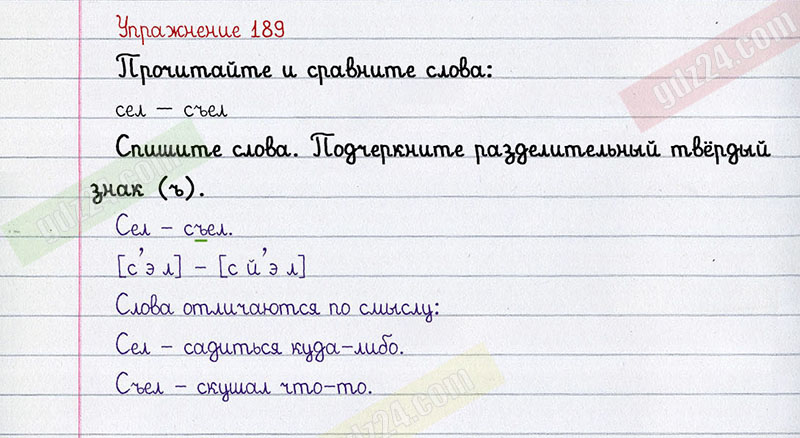 Упражнение 189
Прочитайте и сравните слова:
сел – съел
Спишите слова. Подчеркните разделительный твёрдый
знак (ъ).
Сел – съел.
[с’э л] – [с й’э л]
Слова отличаются по смыслу:
Сел – садиться куда-либо.
Съел – скушал что-то.
gdz24.com
gdz24.com
gdz24.com